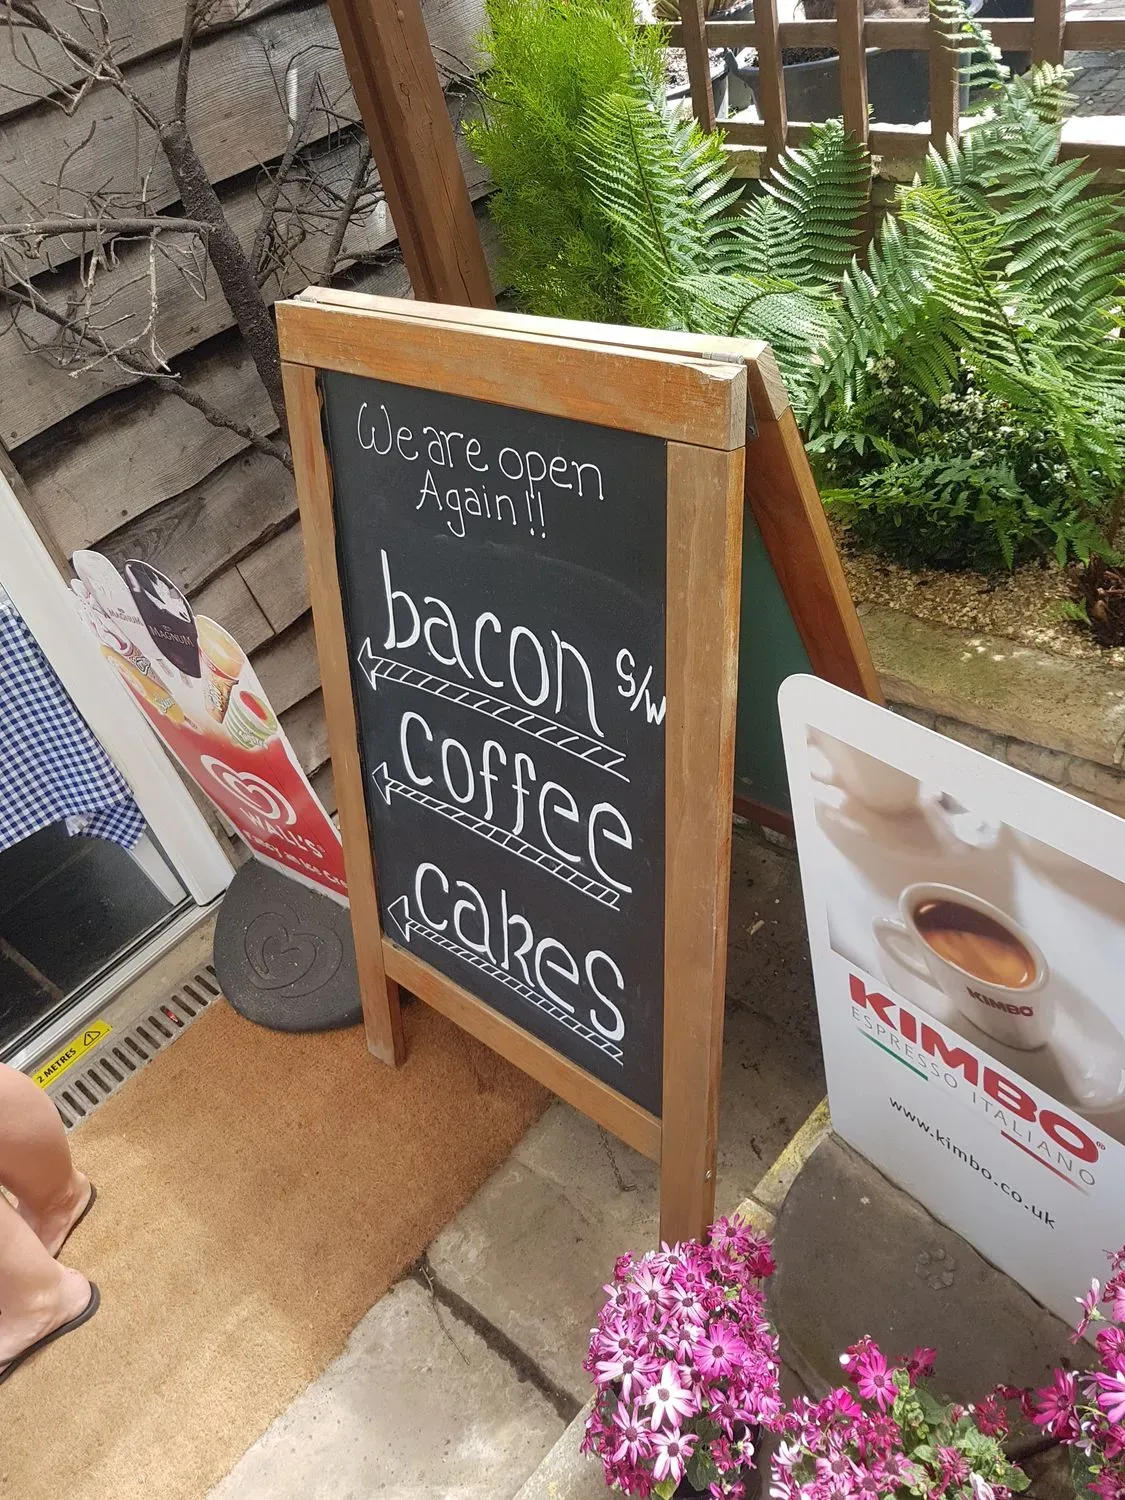 We are open
Again!!
bacon s/w
coffee
cakes
MAGNUM
WALL'S
KIMBO
KIMBO®
ESPRESSO ITALIANO
www.kimbo.co.uk
2 METRES